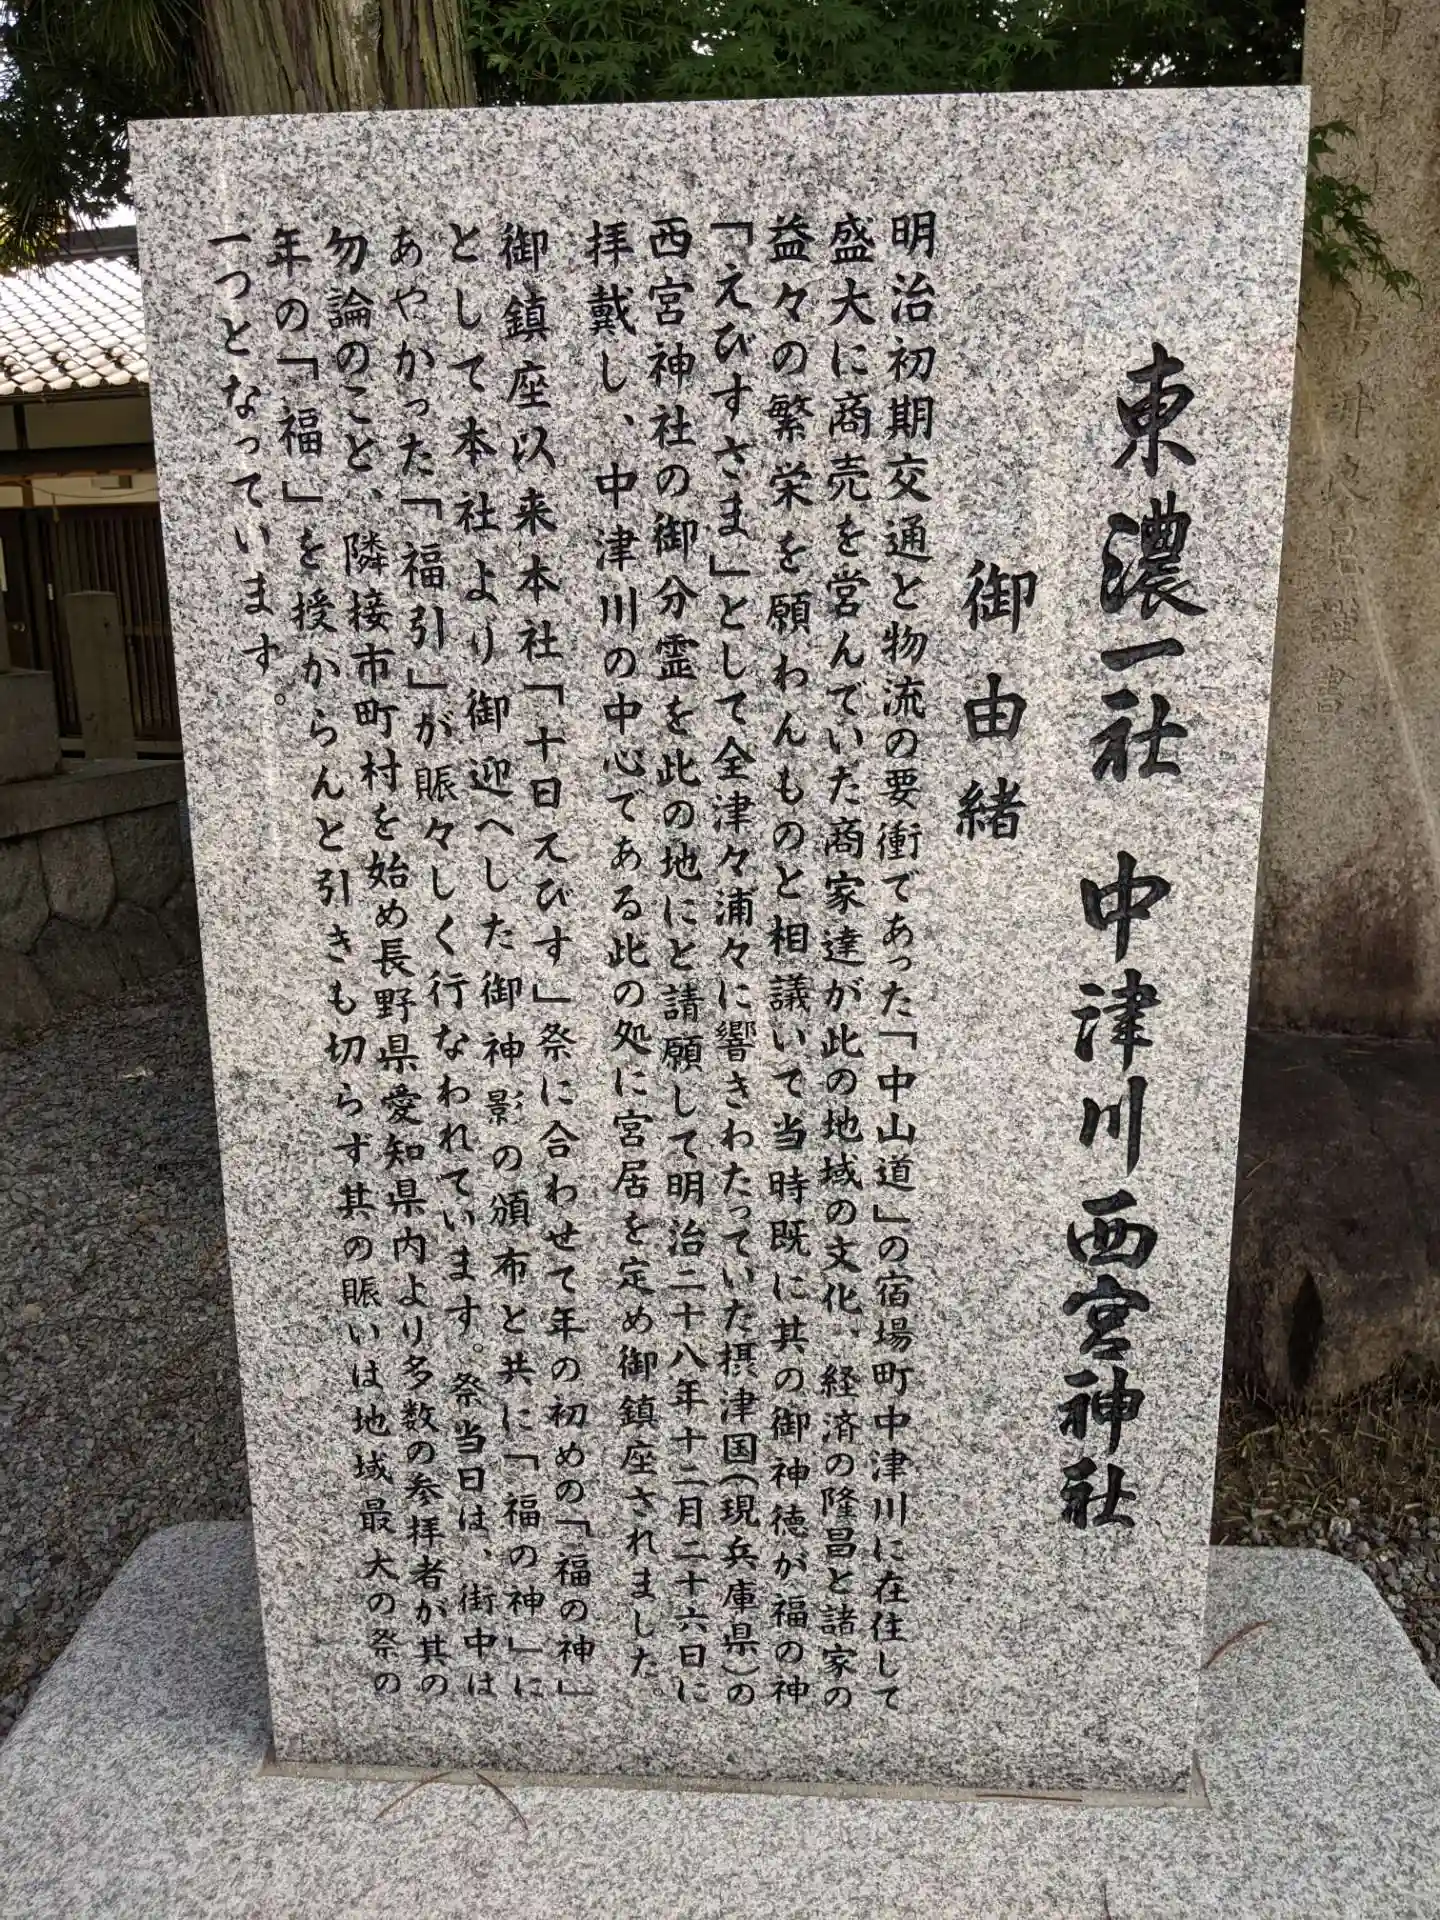 東濃一社 中津川西宮神社
御由緒
明治初期交通と物流の要衝であった「中山道」の宿場町中津川に在住して
盛大に商売を営んでいた商家達が此の地域の文化、経済の隆昌と諸家の
益々の繁栄を願わんものと相議いで当時既に其の御神徳が福の神
「えびすさま」として全津々浦々に響きわたっていた摂津国(現兵庫県)の
西宮神社の御分霊を此の地にと請願して明治二十八年十二月二十六日に
拝戴し、中津川の中心である此の処に宮居を定め御鎮座されました。
御鎮座以来本社「十日えびす」祭に合わせて年の初めの「福の神」
として本社より御迎へした御神影の頒布と共に「福の神」に
あやかった「福引」が賑々しく行なわれています。祭当日は、街中は
勿論のこと、隣接市町村を始め長野県愛知県内より多数の参拝者が其の
年の「福」を授からんと引きも切らず其の賑いは地域最大の祭の
一つとなっています。